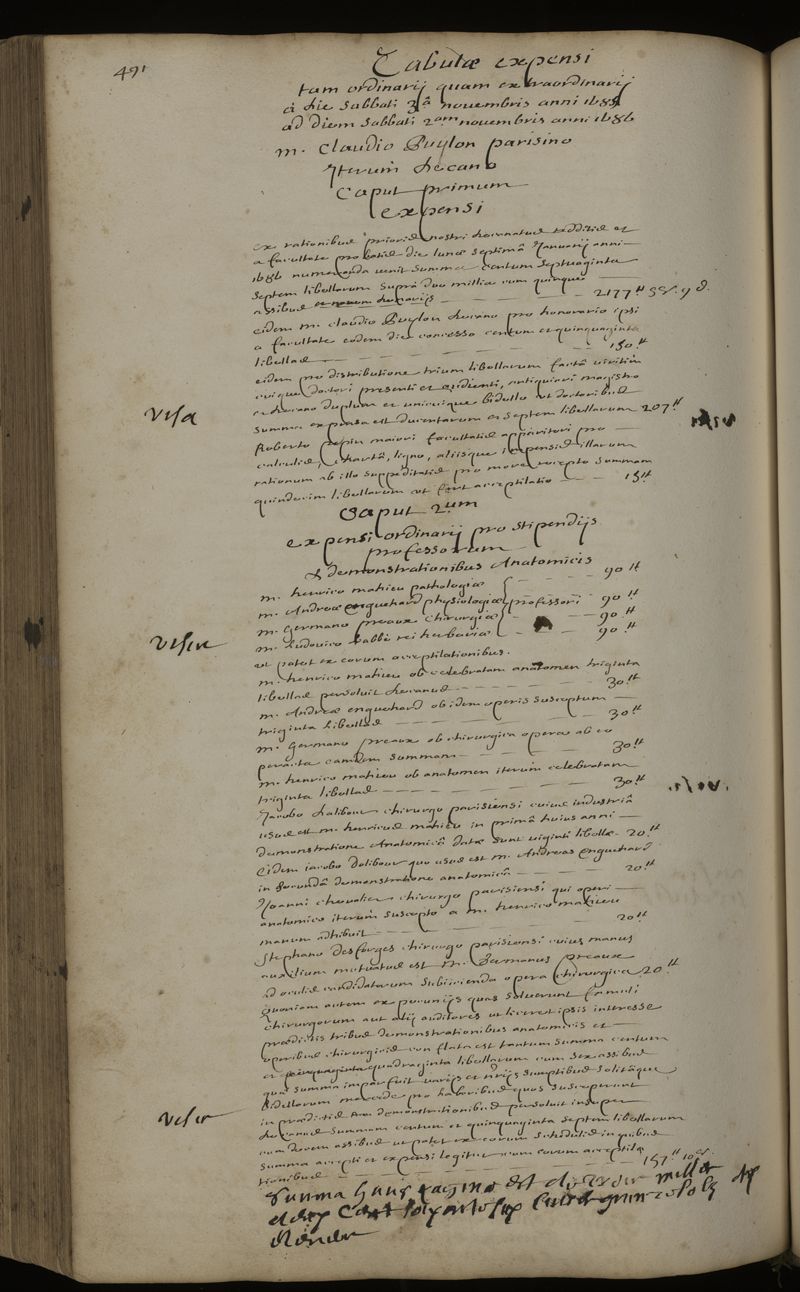 491
Tabulæ expensi
tam ordinarij quam extraordinarij
à die Sabbati 3â novembris anni 1685
ad diem Sabbati 2am novembris anni 1686
m. Claudio Puylon parisino
Iterum decano
Caput primum
Expensi
ex rationibus prioris nostri decanatus redditis et
a facultate probatis die lunæ septimâ Januarij anni
1686 numeranda venit summa centum septuaginta
septem libellarum supra duo millia cum quinque
assibus et novem denarijs 2177lt 5s. 9d.
eidem m. claudio Puylon decano pro honorario ipsi
a facultate eodem die concesso centum et quinquaginta
libellas 150lt
eidem pro distributione trium libellarum factâ viritim
cuique doctori presenti et audienti, antiquiori magistro
et decano duplum et unicuique bidello ut doctoribus
summa expensa est ducentarum et septem libellarum 207lt
visa
Roberto pepin maiori facultatis apparitori pro
calculis, chartâ, ligno, aliisque impensis illarum
rationum ab illo suppeditatis pro more recepto summam
quindecim libellarum ut fert acceptilatio 15lt
Caput 2um
expensi ordinarij pro stipendijs
professorum
& demonstrationibus Anatomicis
m. henrico mahieu pathologiæ 90lt
m. Andreæ enguehard physiologiæ professori 90lt
m. Germano preaux chirurgiæ 90lt
m. Ludovico labbé rei herbariæ 90lt
viser
ut patet ex eorum acceptilationibus.
m. henrico mahieu ob celebratam anatomen triginta
libellas persoluit decanus 30lt
m. Andreæ enguehard ob idem operis susceptum
triginta libellas 30lt
m. Germano preaux ob chirurgica opera ab eo
peracta eamdem summam 30lt
m. henrico mahieu ob anatomen iterum celebratam
triginta libellas 30lt
Jacobo dalibour chirurgo parisiensi cuius industriâ
usus est m. henricus mahieu in primâ huius anni
demonstratione Anatomicâ datæ sunt viginti libellæ 20lt
Eidem iacobo dalibour quo usus est m. Andreas enguehard
in secundâ demonstratione anatomicâ 20lt
Joanni chevalier chirurgo parisiensi qui operi
anatomico iterum suscepto a m. henrico mahieu
manum adhibuit 20lt
Stephano desforges chirurgo parisiensi cuius manus
auxilium mutuatus est m. Germanus preaux
ad oculis candidatorum subijcienda opera chirurgica 20lt
Quoniam autem ex pecunijs quas soluerunt famuli
chirurgorum aut alij auditores ut liceret ipsis interesse
prædictis tribus demonstrationibus anatomicis et
operibus chirurgicis conflata est tantum summa centum
et quadraginta libellarum cum sex assibus
quæ summa impar fuit varijs et sumptibus solitæque
Bidellorum mercede pro laboribus quos susceperunt
in prædictis demonstrationibus persoluit insuper
decanus summam centum et quinquaginta septem libellarum
cum decem assibus ut patet ex eorum schedulis in quibus
summa accepti et expensi legitur cum eorum acceptila
tionibus 157lt 10s.
viser
Summa huius paginæ est